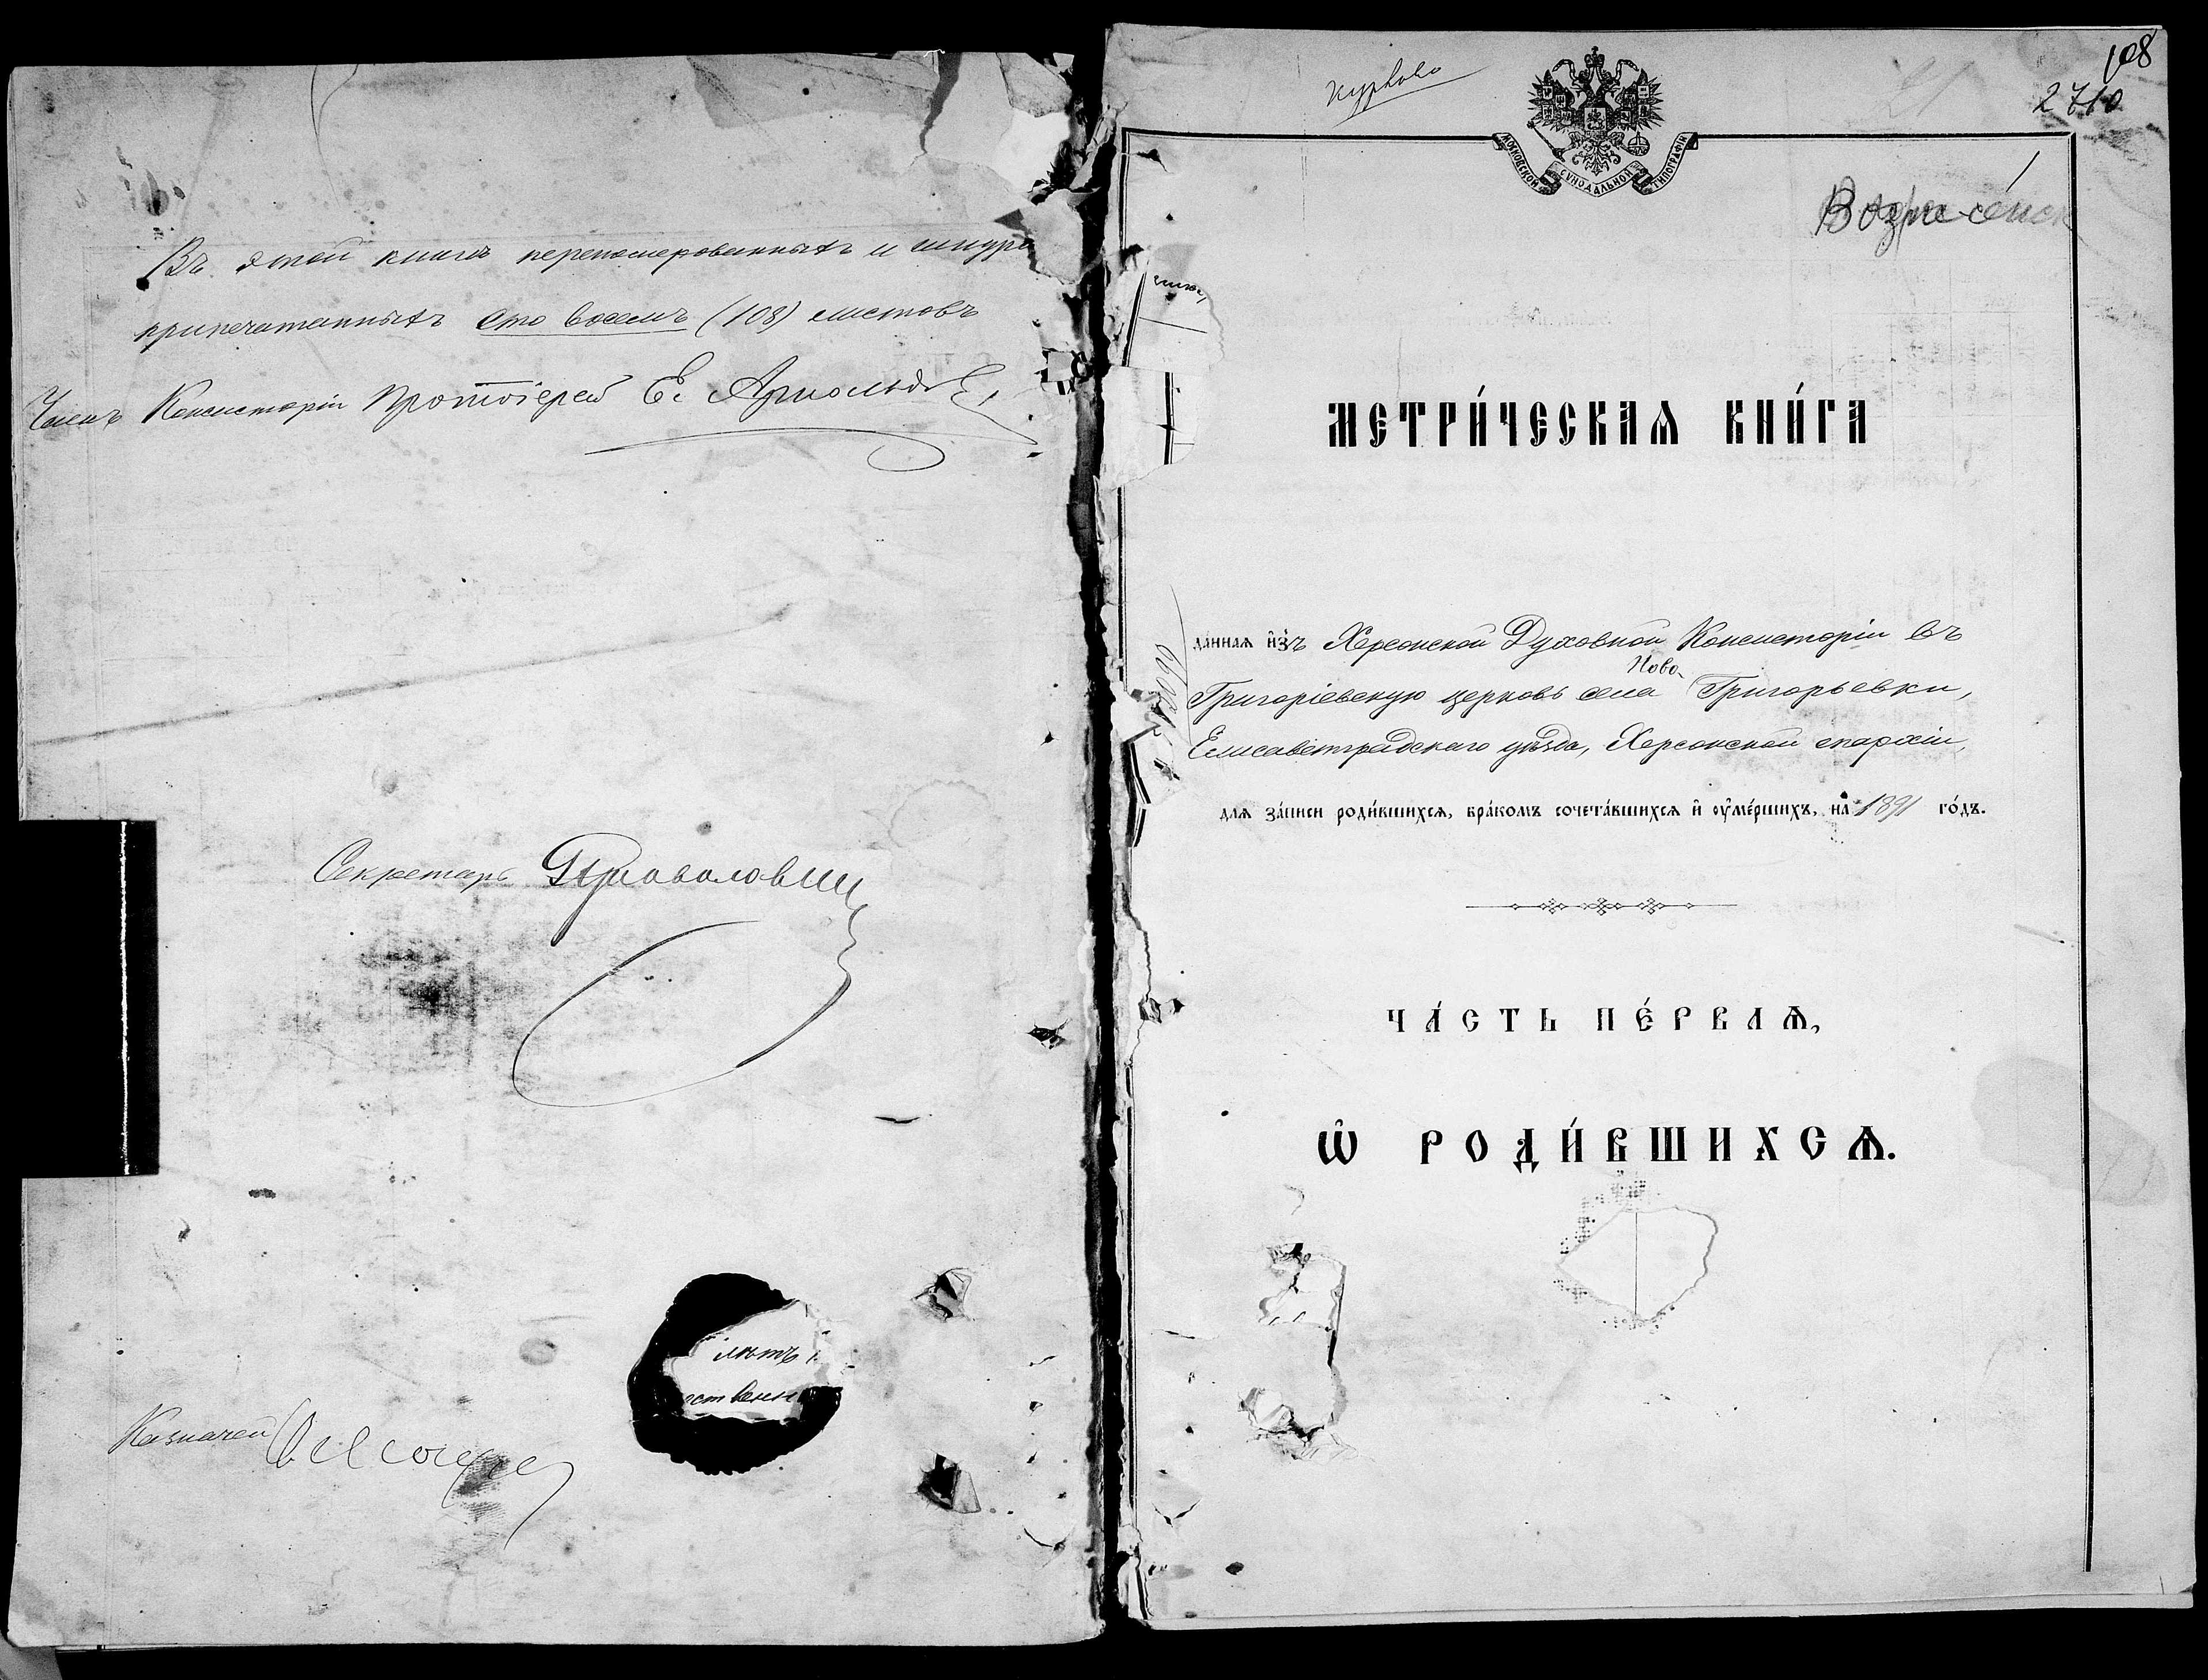 Въ этой книгѣ переномерованныхъ и шнуро
припечатанныхъ сто восемь (108) листовъ
Членъ Консисторіи Протоіерей Е. Арнольдъ
Секретарь
лѣтъ
ственн
Казначей
108
2710
1
МОСКОВСКОЙ СѴНОДАЛЬНОЙ ТИПОГРАФІИ
МЕТРИ́ЧЕСКАѦ КНИ́ГА
да́ннаѧ и҆зъ Херсонской Духовной Консисторіи въ
Григоріевскую церковь села Ново-Григорьевки,
Елисаветградскаго уѣзда, Херсонской епархіи,
длѧ за́писи роди́вшихсѧ, бра́комъ сочета́вшихсѧ и҆ ᲂу҆ме́ршихъ, на 1891 го́дъ.
ЧА́СТЬ ПЕ́РВАѦ,
Ѽ РОДИ́ВШИХСѦ.